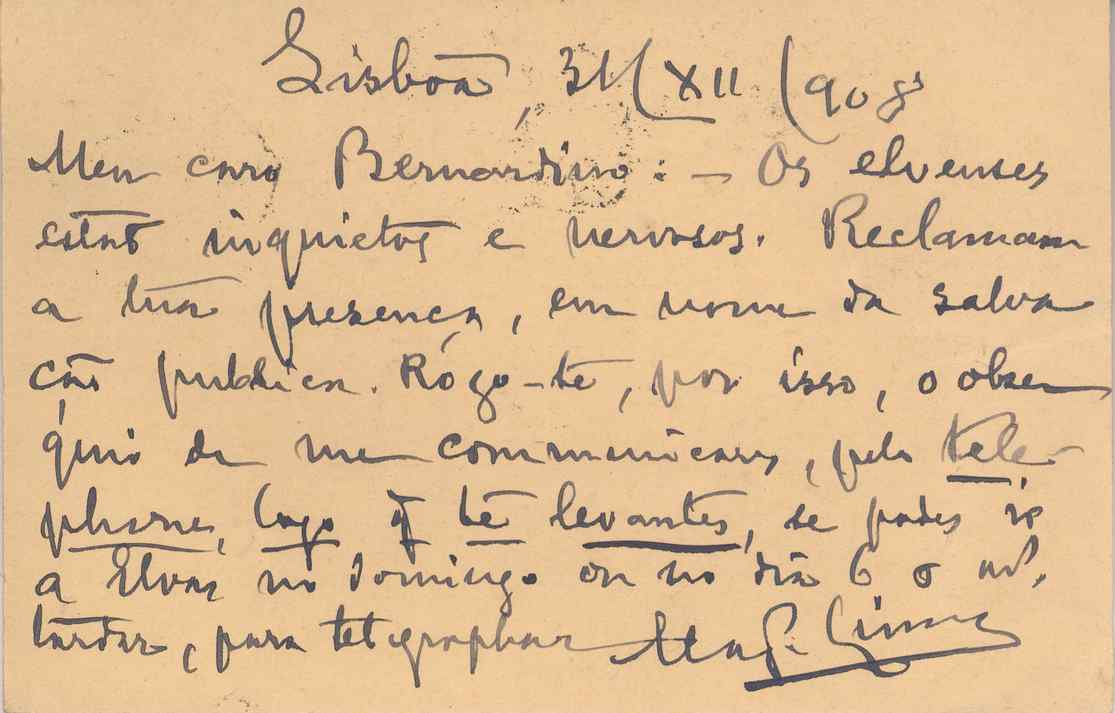 Lisboa, 31/XII/908
Meu caro Bernardino: — Os elvenses
estão inquietos e nervosos. Reclamam
a tua presença, em nome da salva
ção publica. Rógo-te, por isso, o obse
quio de me communicares, pelo tele-
phone, logo q te levantes, se podes ir
a Elvas no domingo ou no dia 6 o
tardar, para telegraphar
Lima